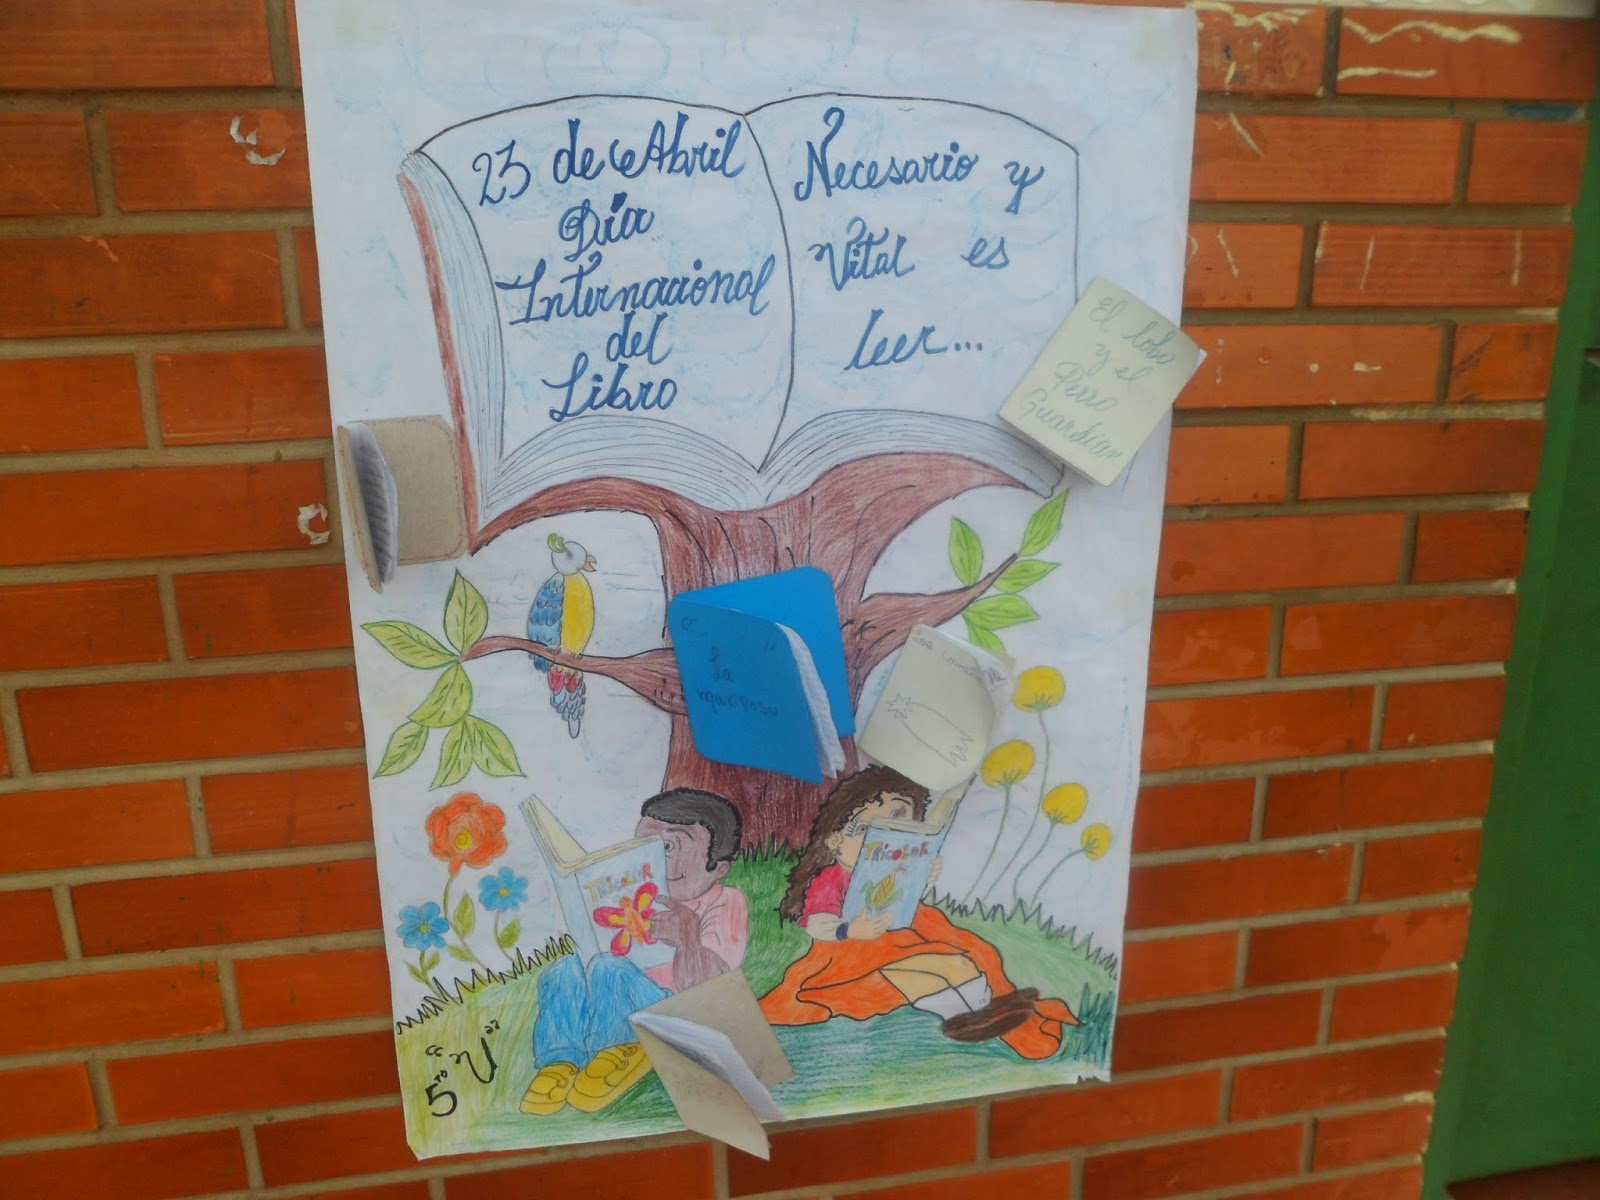 23 de Abril
Día
Internacional
del
Libro
Necesario y
Vital es
leer...
El lobo
y el
Perro
Guardian
La
mariposa
TRICOLOR
TRICOLOR
5to "U"